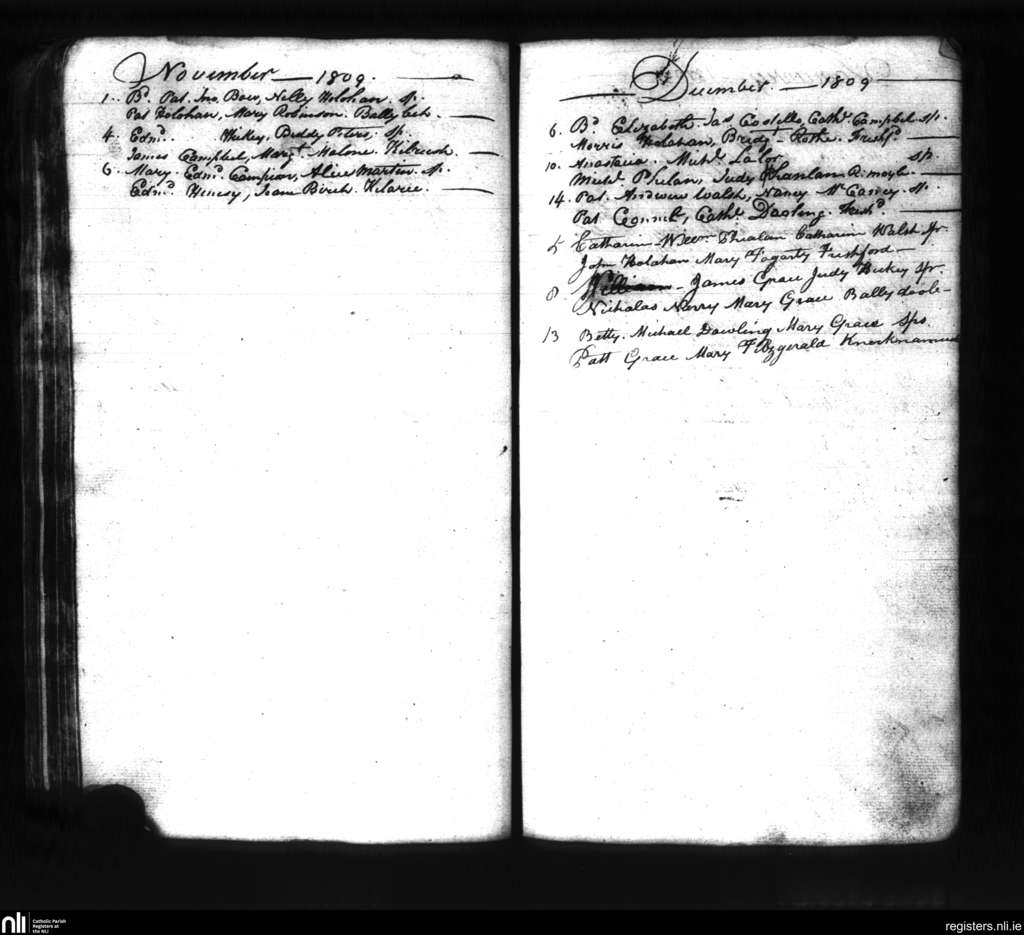 November — 1809.
1.. Bd. Pat. Jno. Bow, Nelly Holohan. Sp.
Pat Holohan, Mary Robinson. Bally
4. Edmd. Hickey, Biddy Peters. Sp.
James Campbel, Margt. Malone. Kilrush.
6. Mary. Edmd. Campion, Alice Martin. Sp.
Edmd. Henesy, Joan Birch.
December. — 1809
6. Bd. Elizabeth. Jas Costello, Cathe. Campbel. Sp.
Morris Holahan, Bridt. Rothe. Freshd.
10. Anastacia. Michl. Lalor, Sp.
Michl. Phelan, Judy
14. Pat. Andrew Walsh, Nancy Sp.
Pat Connel, Cathe. Dooling. Freshd.
5 Catharin Wm. Thealan Catharin Walsh Spr.
John Holahan Mary Fogarty Freshford —
8 William — James Grace Judy Hickey Spr.
Nicholas Mary Grace Ballydoole —
13 Betty. Michael Dowling Mary Grace Sps.
Patt Grace Mary Fitzgerald
nli
Catholic Parish
Registers at
the NLI
registers.nli.ie